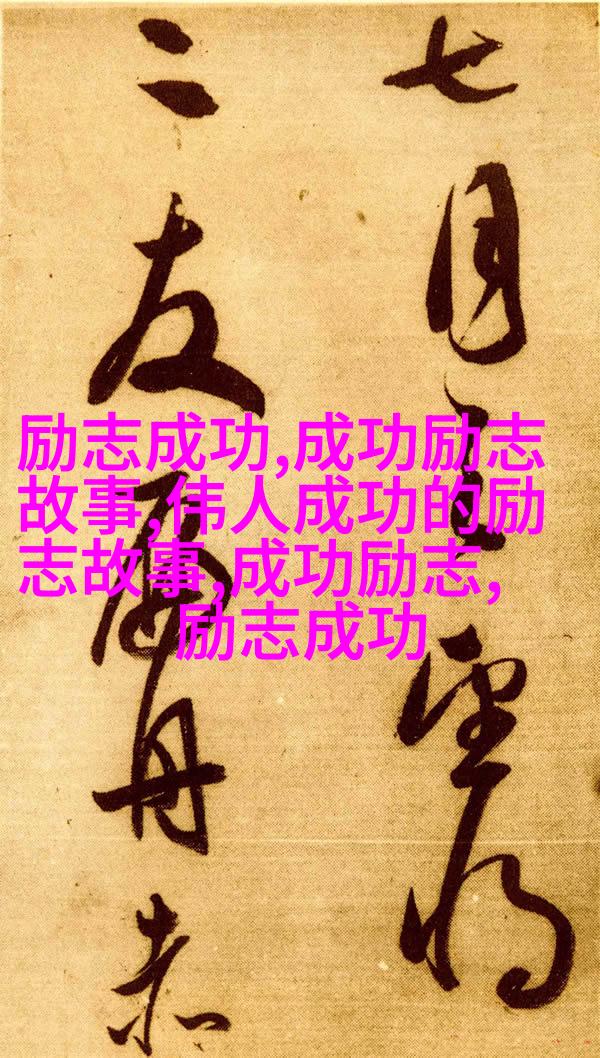 七月望将
二友舟赤
励志成功,成功励志
故事,伟人成功的励
志故事,成功励志,
励志成功